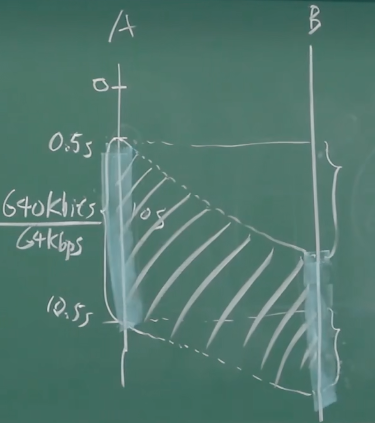 A
B
0
0.5s
640kbits
64kbps
10s
10.5s